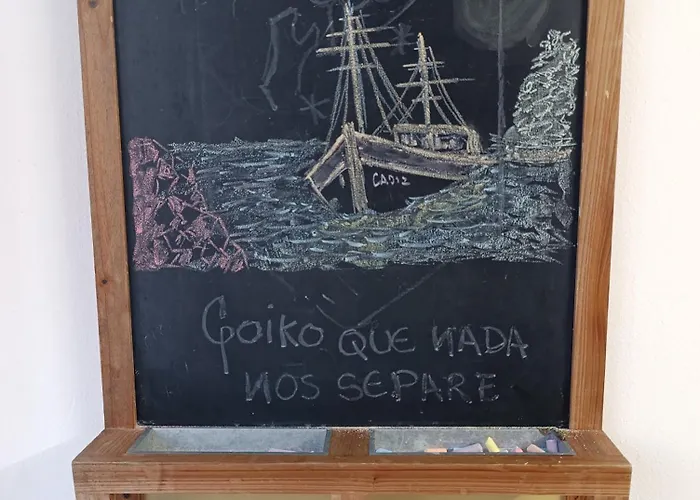 CADIZ
Goiko QUE NADA
NOS SEPARE